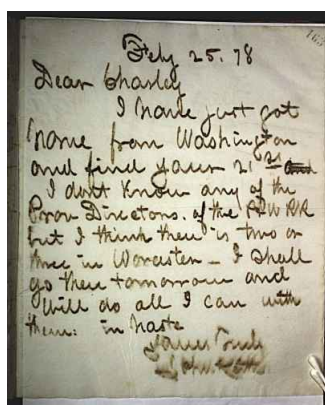 Feby 25. 78
Dear Charley
I have just got
home from Washington
and find yours 21st and
I dont know any of the
Prov Directors. of the P&W RR
but I think their is two or
three in Worcester - I shall
go there tomorrow and
will do all I can with
them: in haste
Yours Truly
John